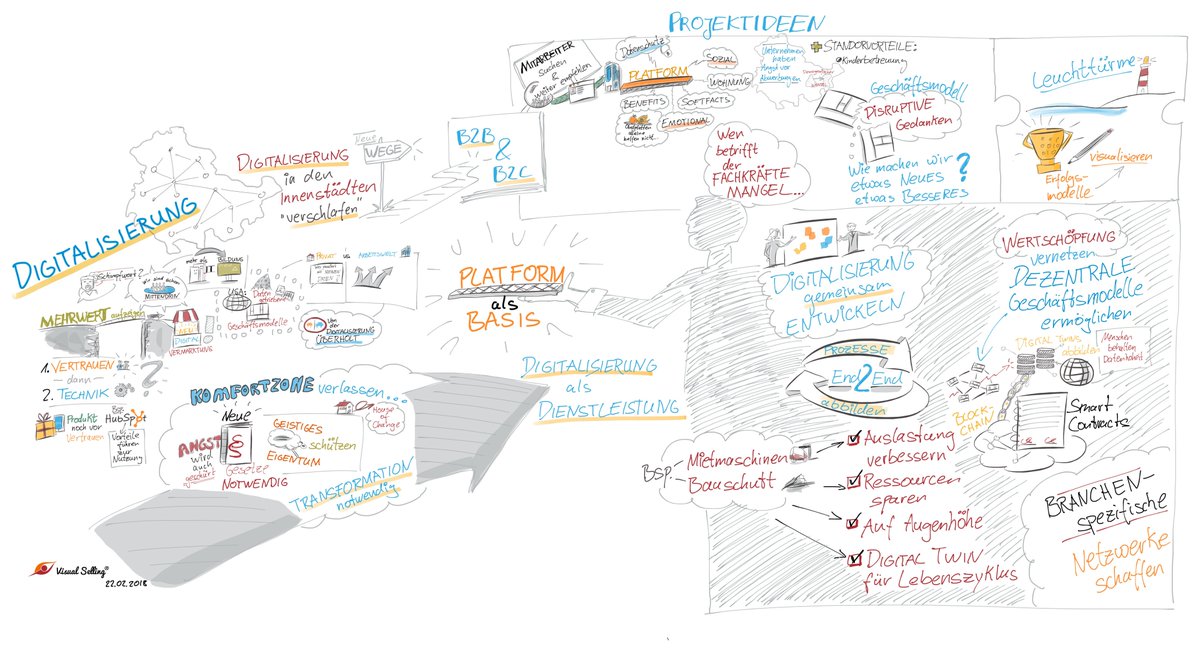 PROJEKTIDEEN
MITARBEITER
suchen
&
weiter empfehlen
Datenschutz
PLATFORM
SOZIAL
WOHNUNG
BENEFITS
SOFTFACTS
EMOTIONAL
Unternehmen
haben
Angst vor
Abwerbungen
STANDORVORTEILE:
Kinderbetreuung
Geschäftsmodell
DISRUPTIVE
Gedanken
Wen
betrifft
der
FACHKRÄFTE
MANGEL...
Wie machen wir
etwas NEUES
etwas BESSERES
?
Leuchttürme
visualisieren
Erfolgs-
modelle
DIGITALISIERUNG
DIGITALISIERUNG
in den
Innenstädten
"verschlafen"
Neue
WEGE
B2B
&
B2C
Schimpfwort?
Wir sind schon
MITTENDRIN
mehr als
IT
BILDUNG
USA:
Daten getriebene
Geschäftsmodelle
PRIVAT vs ARBEITSWELT
MEHRWERT aufzeigen
NEU
DIGITAL
VERMARKTUNG
Von
der
DIGITALISIERUNG
ÜBERHOLT
1. VERTRAUEN
dann
2. TECHNIK
?
Produkt
noch vor
Vertrauen
Bsp.
HubSpot
Vorteile
führen
zur
Nutzung
PLATFORM
als
BASIS
KOMFORTZONE verlassen...
House
of
Change
ANGST
wird
auch
geschürt
Neue
§§
Gesetze
NOTWENDIG
GEISTIGES
EIGENTUM
schützen
TRANSFORMATION
notwendig
DIGITALISIERUNG
als
DIENSTLEISTUNG
DIGITALISIERUNG
gemeinsam
ENTWICKELN
PROZESSE
End 2 End
abbilden
Bsp.
Mietmaschinen
Bauschutt
Auslastung
verbessern
Ressourcen
sparen
Auf Augenhöhe
DIGITAL TWIN
für Lebenszyklus
WERTSCHÖPFUNG
vernetzen
DEZENTRALE
Geschäftsmodelle
ermöglichen
DIGITAL TWINS
abbilden
Menschen
behalten
Datenhoheit
BLOCK-
CHAIN
Smart
Contracts
BRANCHEN-
spezifische
Netzwerke
schaffen
Visual Selling®
22.02.2018